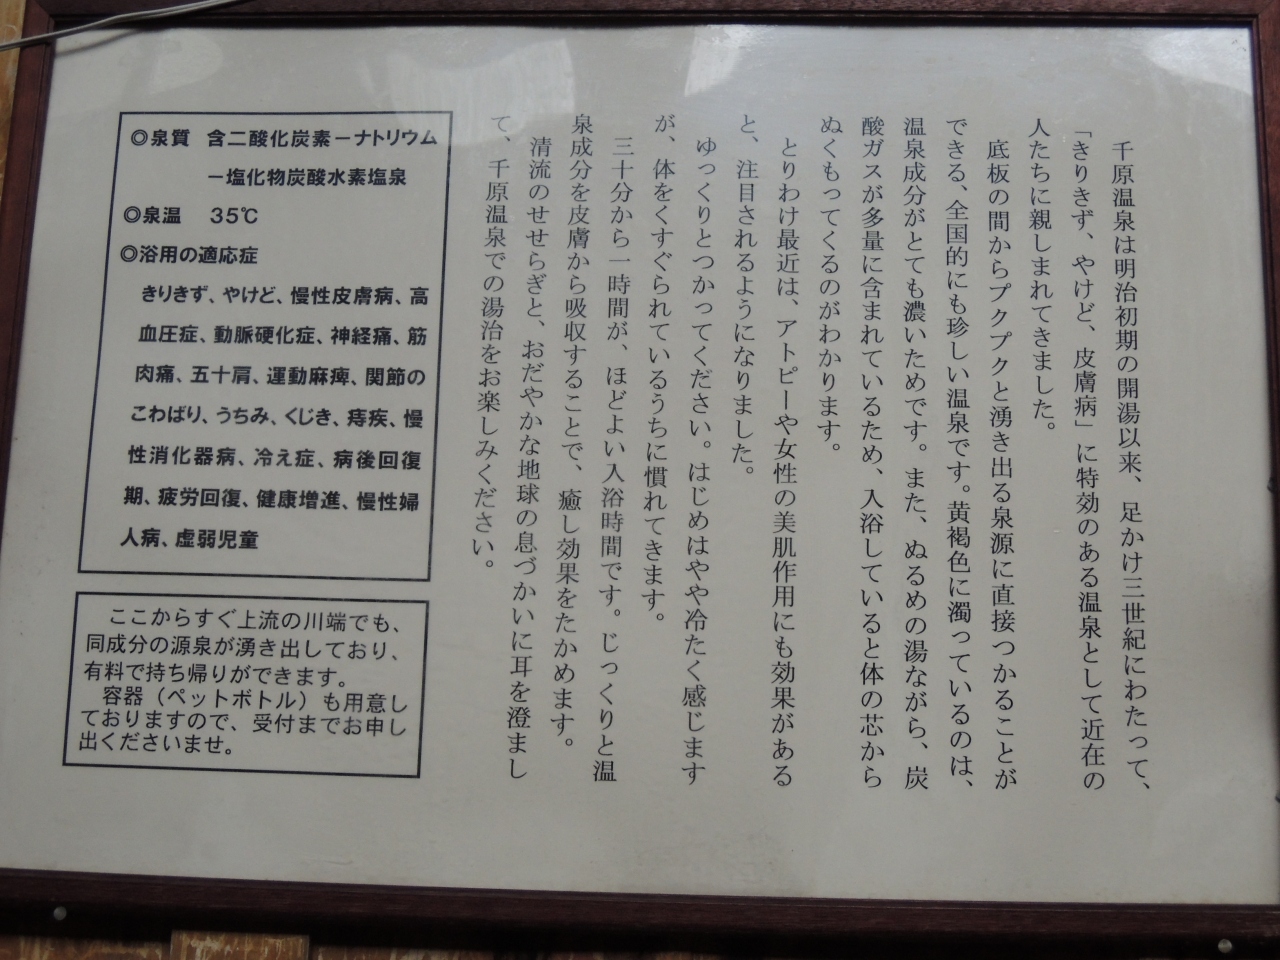 千原温泉は明治初期の開湯以来、足かけ三世紀にわたって、
「きりきず、やけど、皮膚病」に特効のある温泉として近在の
人たちに親しまれてきました。
底板の間からプクプクと湧き出る泉源に直接つかることが
できる、全国的にも珍しい温泉です。黄褐色に濁っているのは、
温泉成分がとても濃いためです。また、ぬるめの湯ながら、炭
酸ガスが多量に含まれているため、入浴していると体の芯から
ぬくもってくるのがわかります。
とりわけ最近は、アトピーや女性の美肌作用にも効果がある
と、注目されるようになりました。
ゆっくりとつかってください。はじめはやや冷たく感じます
が、体をくすぐられているうちに慣れてきます。
三十分から一時間が、ほどよい入浴時間です。じっくりと温
泉成分を皮膚から吸収することで、癒し効果をたかめます。
清流のせせらぎと、おだやかな地球の息づかいに耳を澄まし
て、千原温泉での湯治をお楽しみください。
◎泉質 含二酸化炭素－ナトリウム
－塩化物炭酸水素塩泉
◎泉温 35℃
◎浴用の適応症
きりきず、やけど、慢性皮膚病、高
血圧症、動脈硬化症、神経痛、筋
肉痛、五十肩、運動麻痺、関節の
こわばり、うちみ、くじき、痔疾、慢
性消化器病、冷え症、病後回復
期、疲労回復、健康増進、慢性婦
人病、虚弱児童
ここからすぐ上流の川端でも、
同成分の源泉が湧き出しており、
有料で持ち帰りができます。
容器（ペットボトル）も用意し
ておりますので、受付までお申し
出くださいませ。